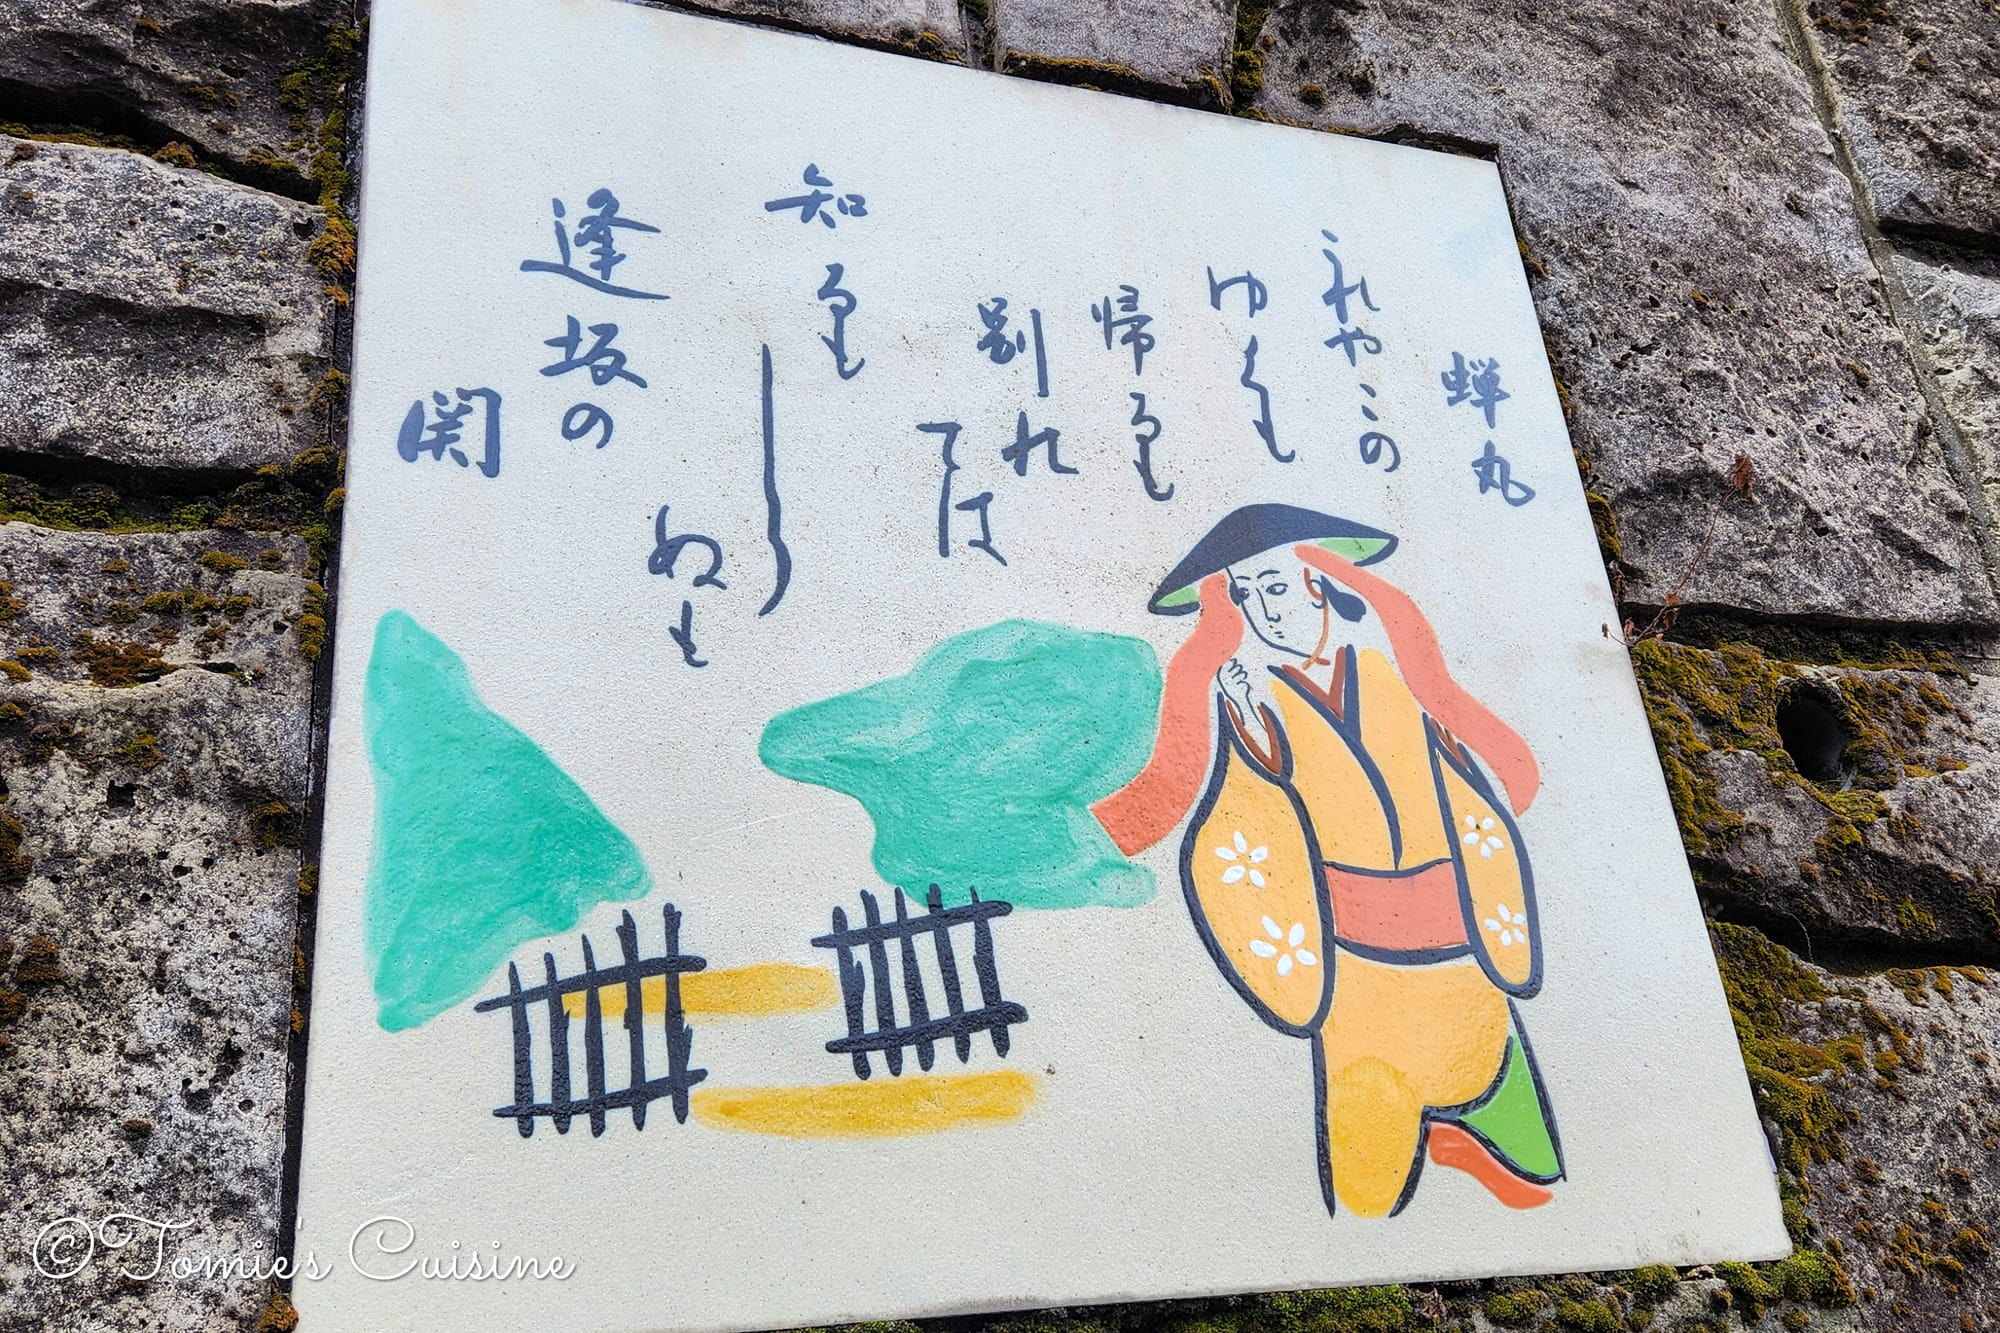 蝉丸
これやこの
ゆくも
帰るも
別れ
ては
知るも
し
らぬも
逢坂の
関
©Tomie's Cuisine